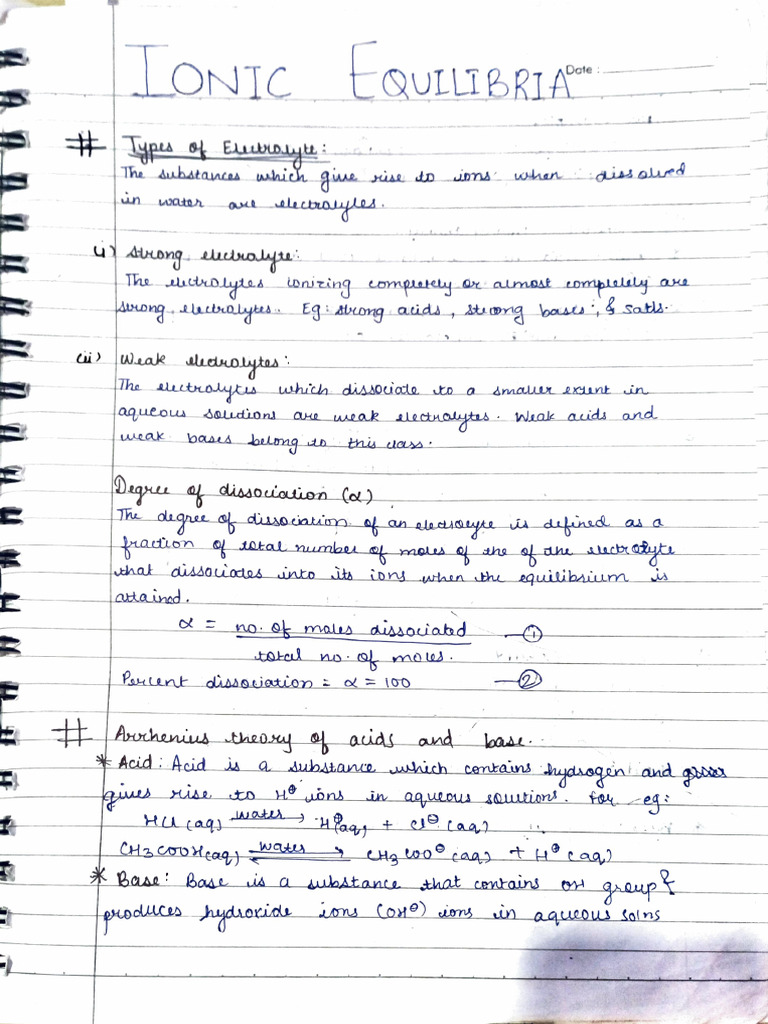 IONIC EQUILIBRIA Date:
# Types of Electrolyte:
The substances which give rise to ions when dissolved
in water are electrolytes.
(i) Strong electrolyte:
The electrolytes ionizing completely or almost completely are
strong electrolytes. Eg: strong acids, strong bases, & satls.
(ii) Weak electrolytes:
The electrolytes which dissociate to a smaller extent in
aqueous solutions are weak electrolytes. Weak acids and
weak bases belong to this class.
Degree of dissociation (α)
The degree of dissociation of an electrolyte is defined as a
fraction of total number of moles of the of the electrolyte
that dissociates into its ions when the equilibrium is
attained.
α = no. of moles dissociated —①
total no. of moles.
Percent dissociation = α = 100 —②
# Arrhenius theory of acids and base.
* Acid: Acid is a substance which contains hydrogen and
gives rise to H⊕ ions in aqueous solutions. For eg:
HCl (aq) water → H⊕(aq) + Cl⊖ (aq)
CH3COOH(aq) water ⇌ CH3COO⊖ (aq) + H⊕ (aq)
* Base: Base is a substance that contains OH group &
produces hydroxide ions (OH⊖) ions in aqueous solns